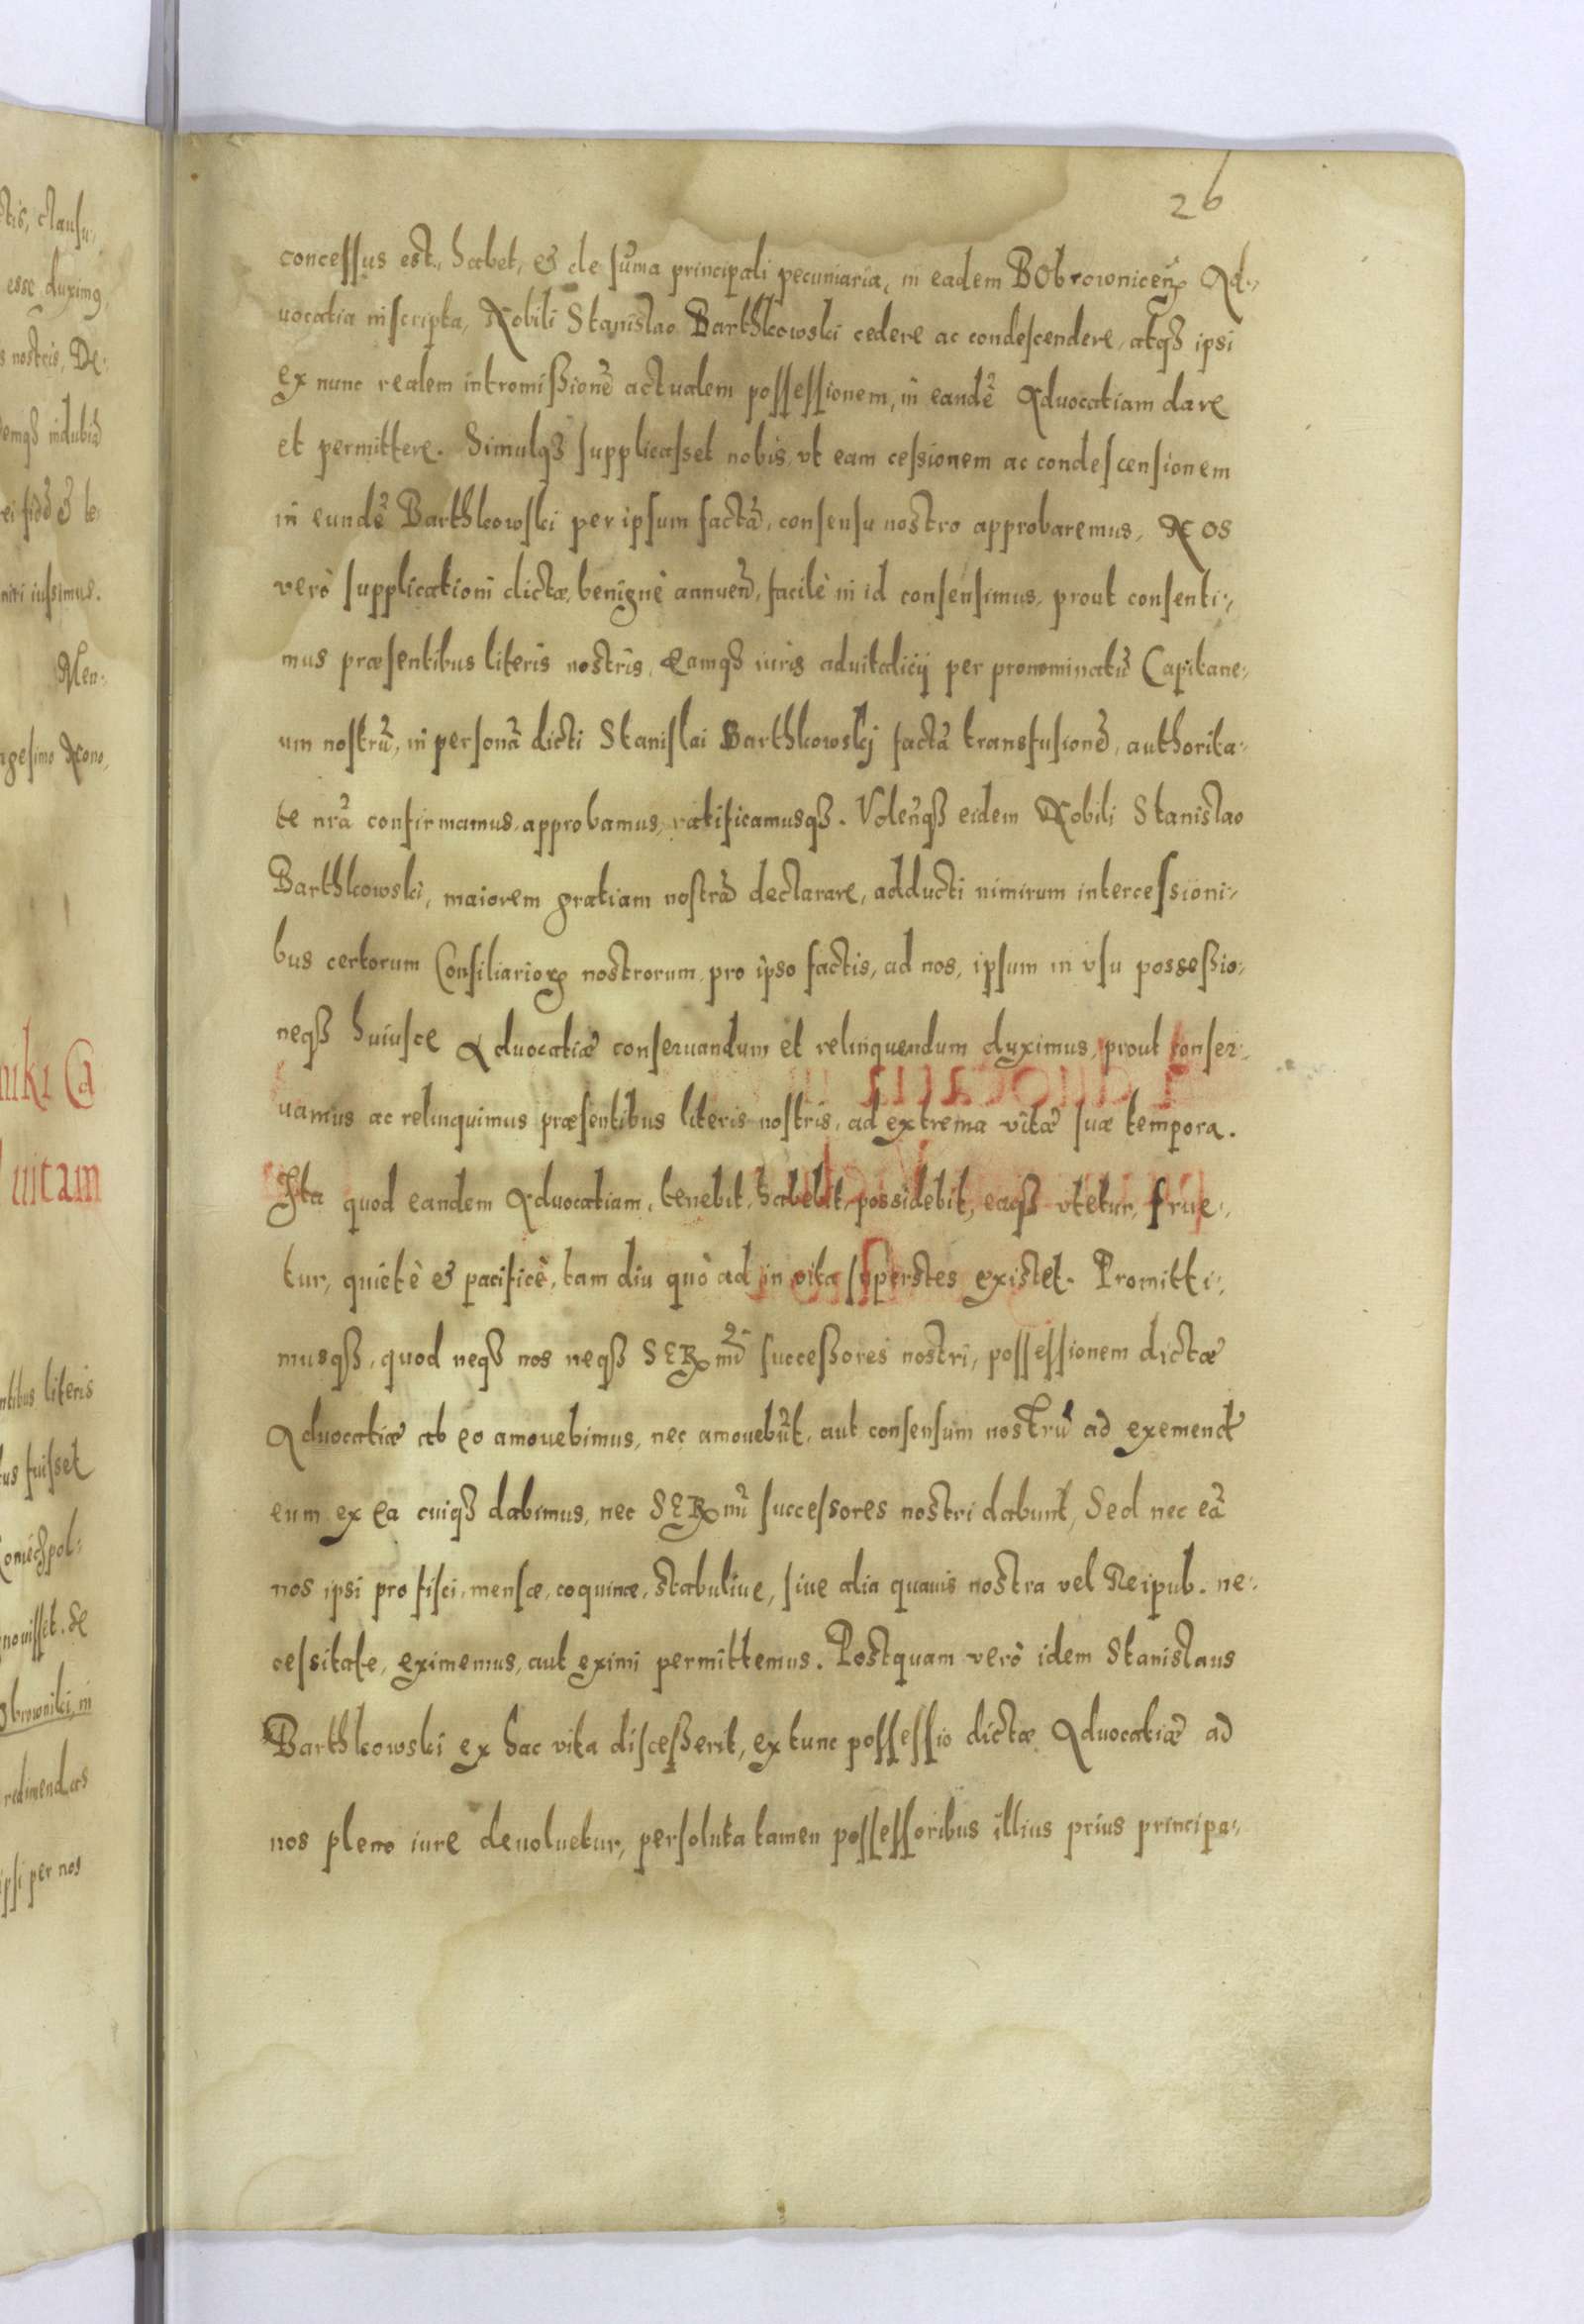 26
concessus est, habet, & de sum̃a principali pecuniaria, in eadem BObrowniceñ Ad-
uocatia inscripta, Nobili Stanislao Barthkowski cedere ac condescendere, atqȝ ipsi
ex nunc realem intromißionẽ actualem possessionem, in eandẽ Aduocatiam dare
et permittere. Simulqȝ supplicasset nobis, vt eam cessionem ac condescensionem
in eundẽ Barthkowski per ipsum factã, consensu nostro approbaremus, NOS
verò supplicationi dictæ, benignè annueñ, facilè in id consensimus, prout consenti-
mus præsentibus literis nostris, eamqȝ iuris aduitalicij per pronominatũ Capitane-
um nostrũ, in personã dicti Stanislai Barthkowskj factã transfusionẽ, authorita-
te nrã confirmamus, approbamus, ratificamusqȝ. Voleñqȝ eidem Nobili Stanislao
Barthkowski, maiorem gratiam nostrã declarare, adducti nimirum intercessioni-
bus certorum Consiliarioꝝ nostrorum, pro ipso factis, ad nos, ipsum in vsu posseßio-
neqȝ huiusce Aduocatiæ conseruandum et relinquendum duximus, prout conser-
uamus ac relinquimus præsentibus literis nostris, ad extrema vitæ suæ tempora.
Ita quod eandem Aduocatiam, tenebit, habebit, possidebit, eaqȝ vtetur, frue-
tur, quietè & pacificè, tam diu quò ad in vita superstes existet. Promitti-
musqȝ, quod neqȝ nos neqȝ SERmĩ succeßores nostri, possessionem dictæ
Aduocatiæ ab eo amouebimus, nec amouebũt, aut consensum nostrũ ad exemend̃
eum ex ea cuiqȝ dabimus, nec SERmĩ successores nostri dabunt, Sed nec eã
nos ipsi pro fisci, mensæ, coquinæ, stabuliue, siue alia quauis nostra vel Reipub. ne-
cessitate, eximemus, aut eximi permittemus. Postquam verò idem Stanislaus
Barthkowski ex hac vita disceßerit, ex tunc possessio dictæ Aduocatiæ ad
nos pleno iure deuoluetur, persoluta tamen possessoribus illius prius principa-